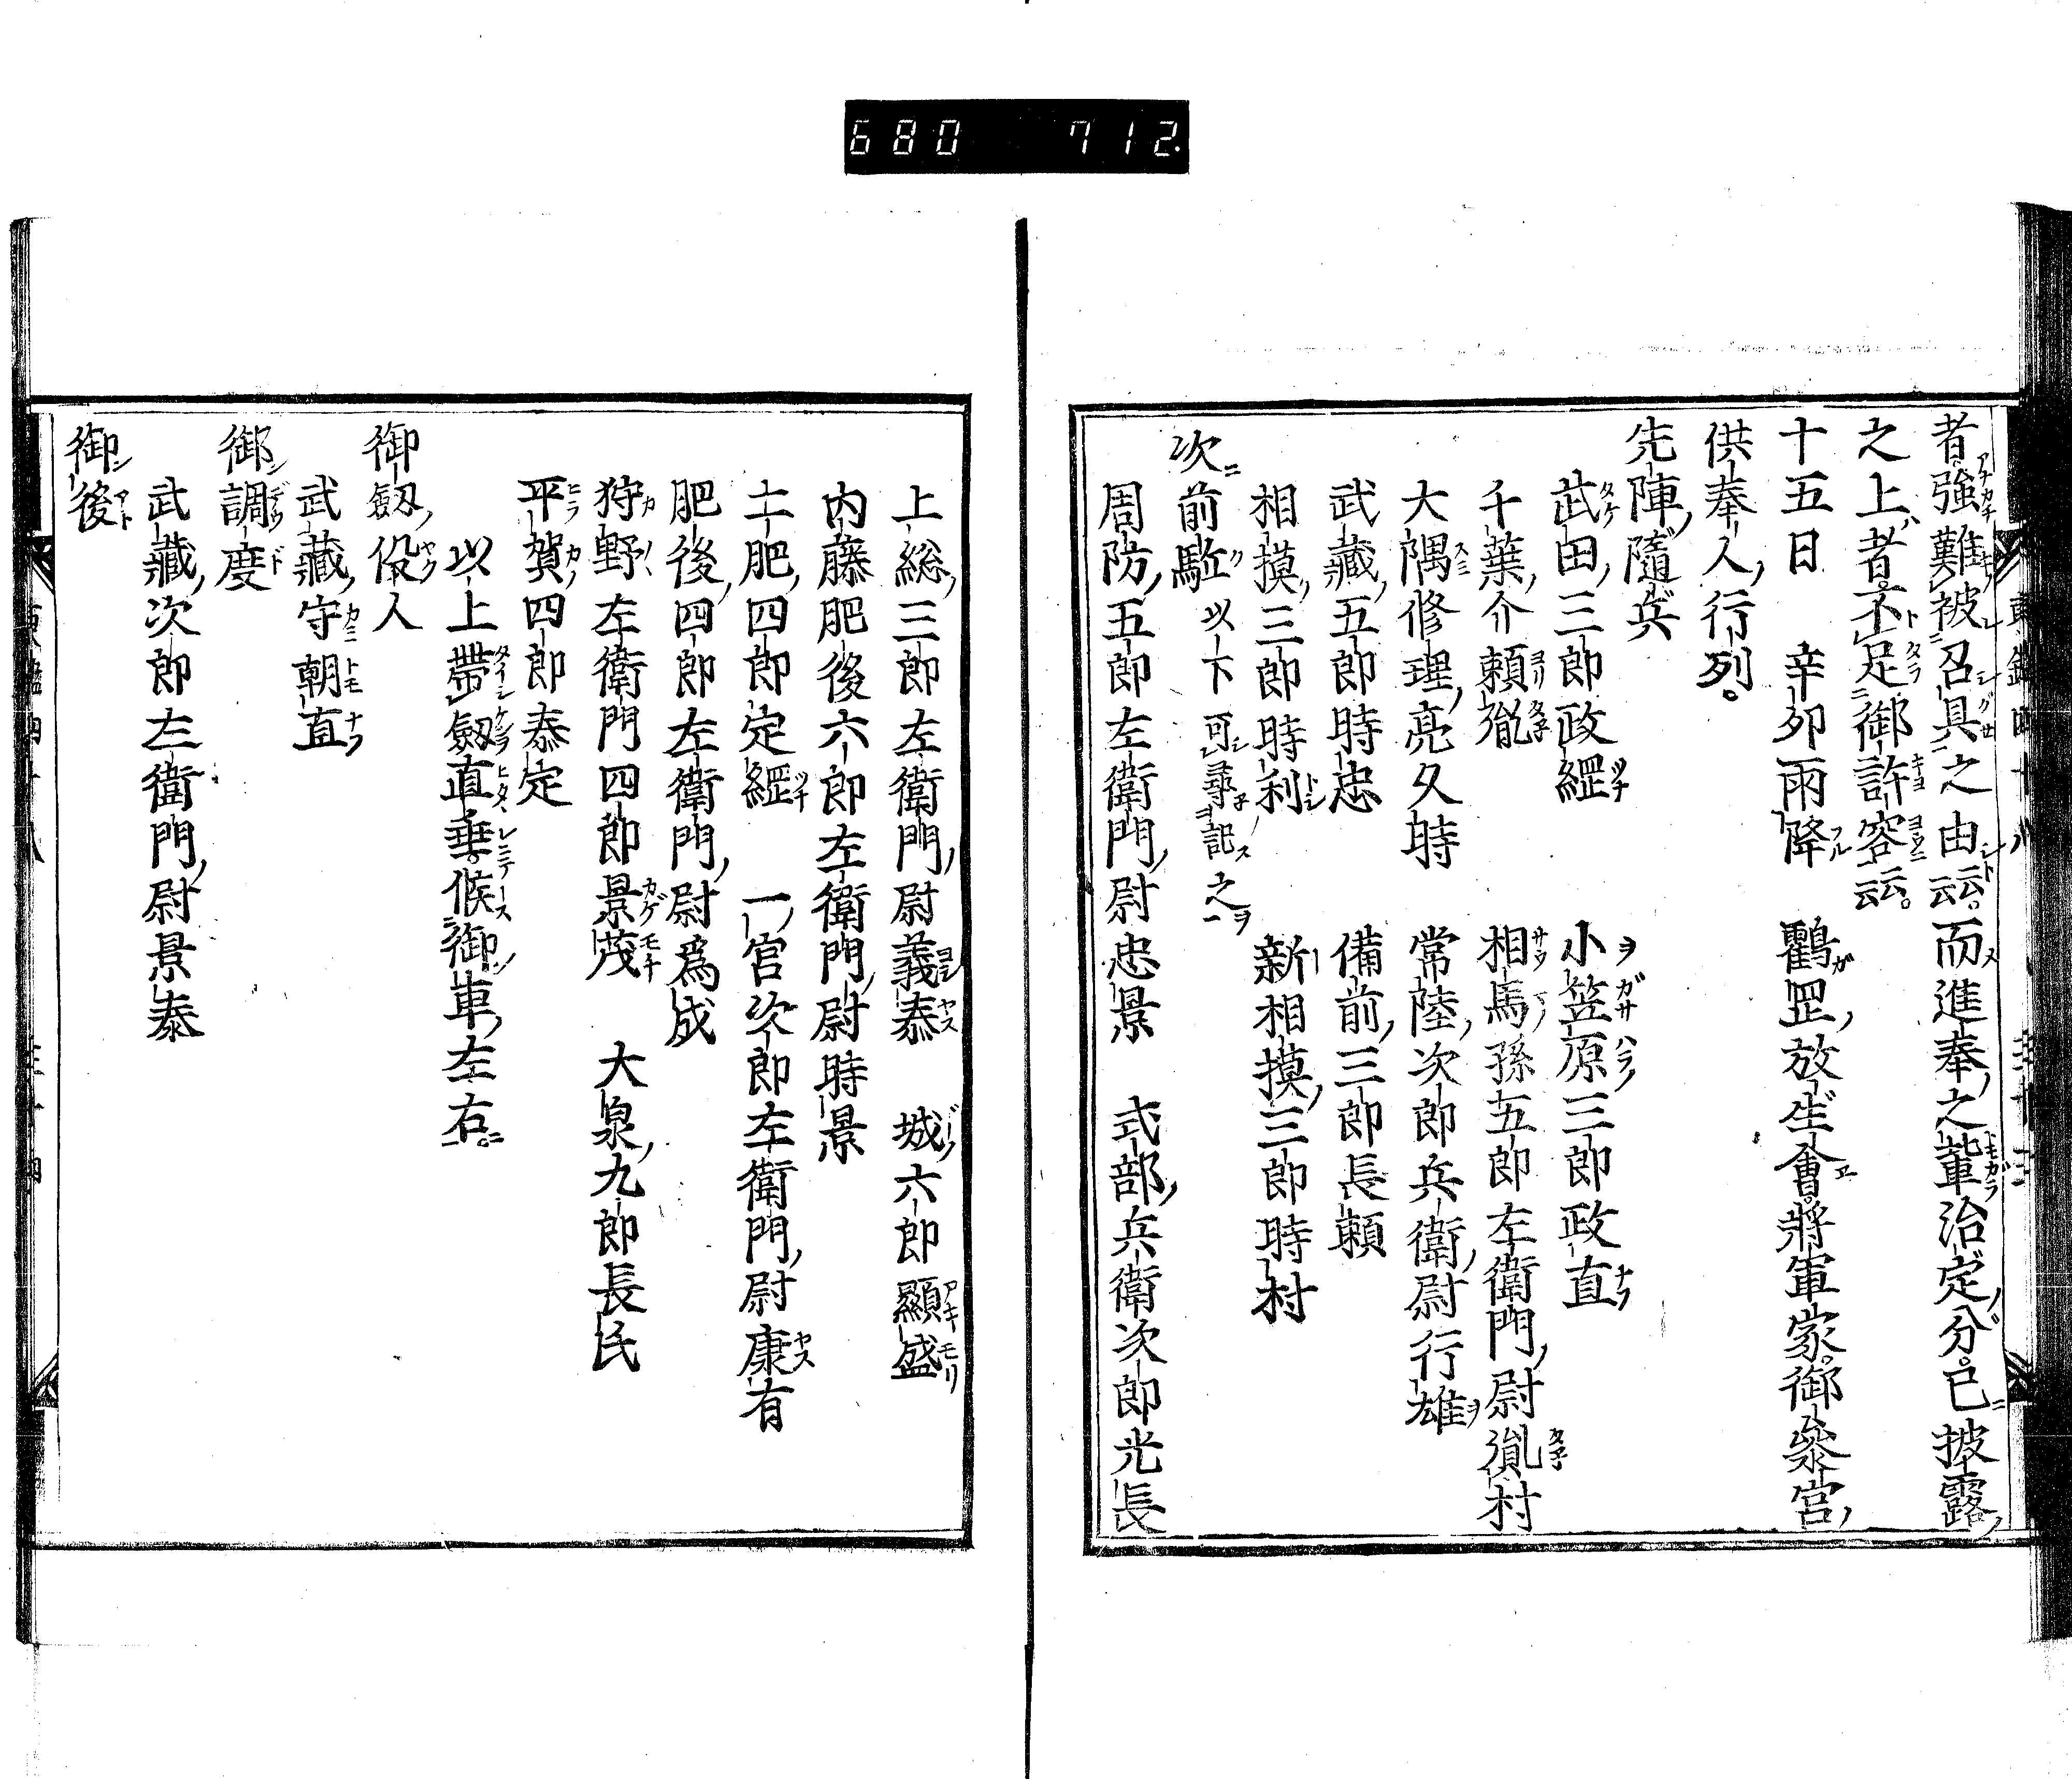 680 712.
者強難被召具之由云云而進奉之輩治定分已披露
之上者不足御許容云云
十五日 辛卯雨降 鸛罡放生會將軍家御參宮
供奉人行列
先陣隨兵
武田三郎政經 小笠原三郎政直
千葉介賴胤 相馬孫五郎左衛門尉胤村
大隅修理亮久時 常陸次郎兵衛尉行雄
武藏五郎時忠 備前三郎長賴
相摸三郎時利 新相摸三郎時村
次前駈以下可尋記之
周防五郎左衛門尉忠景 式部兵衛次郎光長
上総三郎左衛門尉義泰 城六郎顯盛
内藤肥後六郎左衛門尉時景
土肥四郎定經 一宮次郎左衛門尉康有
肥後四郎左衛門尉爲成
狩野左衛門四郎景茂 大泉九郎長氏
平賀四郎泰定
以上帶劔直垂候御車左右
御劔役人
武藏守朝直
御調度
武藏次郎左衛門尉景泰
御後